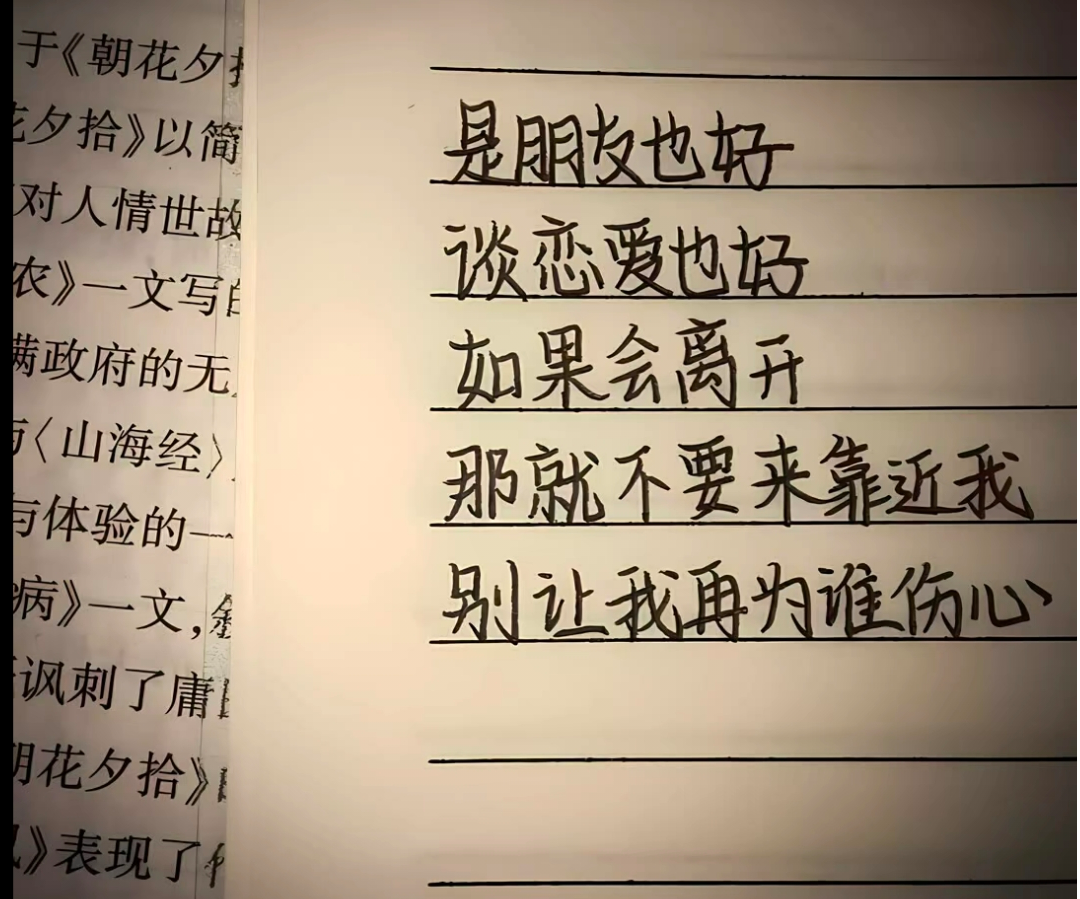 于《朝花夕
花夕拾》以简
对人情世故
农》一文写
满政府的无
〈山海经〉
与体验的一
病》一文，
讽刺了庸
朝花夕拾》
》表现了
是朋友也好
谈恋爱也好
如果会离开
那就不要来靠近我
别让我再为谁伤心